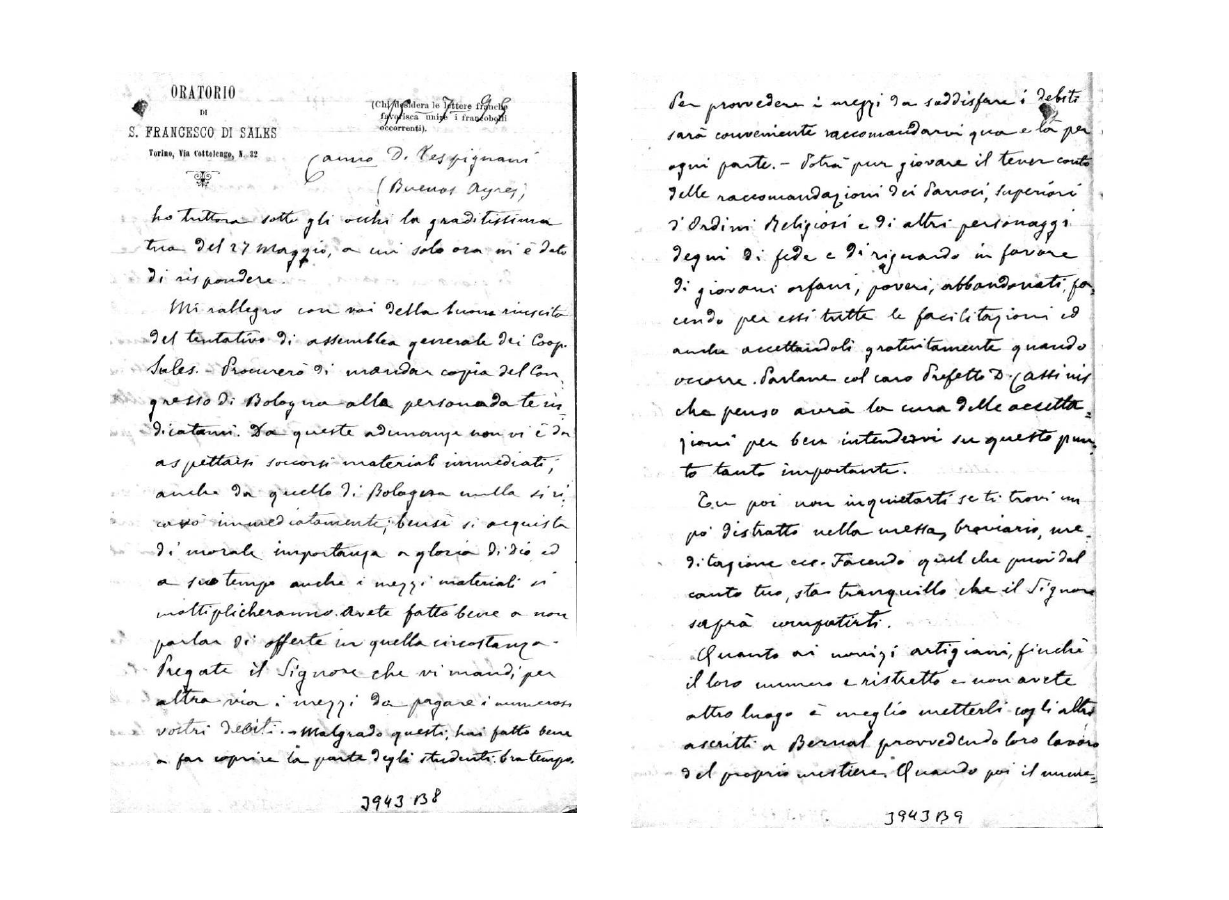 ORATORIO
DI
S. FRANCESCO DI SALES
Torino, Via Cottolengo, N. 32
(Chi desidera le lettere franche
favorisca unire i francobolli
occorrenti).
7 95
Carmo D. Vespignani
(Buenos Ayres)
ho tuttora sotto gli occhi la graditissima
tua del 27 Maggio, a cui solo ora mi è dato
di rispondere
Mi rallegro con voi della buona riuscita
del tentativo di assemblea generale dei Coop.
Sales. - Procurerò di mandar copia del Con
gresso di Bologna alla persona da te in=
dicatami. Da queste adunanze non vi è da
aspettarsi soccorsi materiali immediati;
anche da quello di Bologna nulla si ri
cavò immediatamente; bensì si acquista
di morale importanza a gloria di dio ed
a suo tempo anche i mezzi materiali si
moltiplicheranno. Avete fatto bene a non
parlar di offerte in quella circostanza -
Pregate il Signore che vi mandi, per
altra via i mezzi da pagare i numerosi
vostri debiti. - Malgrado questi, hai fatto bene
a far coprire la parte degli studenti.
3943 B8
Per provvedere i mezzi da soddisfare i debiti
sarà conveniente raccomandarvi qua e là per
ogni parte. - Potrà pur giovare il tener conto
delle raccomandazioni dei Parroci, superiori
d'Ordini Religiosi e di altri personaggi
degni di fede e di riguardo in favore
di giovani orfani, poveri, abbandonati, fa=
cendo per essi tutte le facilitazioni ed
anche accettandoli gratuitamente quando
occorre. Parlane col caro Prefetto D. Cassinis
che penso avrà la cura delle accetta=
zioni per ben intendervi su questo pun=
to tanto importante.
Tu poi non inquietarti se ti trovi un
po' distratto nella messa, breviario, me=
ditazione ecc. Facendo quel che puoi dal
canto tuo, sta tranquillo che il Signore
saprà compatirti.
Quanto ai novizi artigiani, finchè
il loro numero è ristretto e non avete
altro luogo è meglio metterli cogli altri
ascritti a Bernal provvedendo loro lavoro
del proprio mestiere. Quando poi il nume=
3943 B9